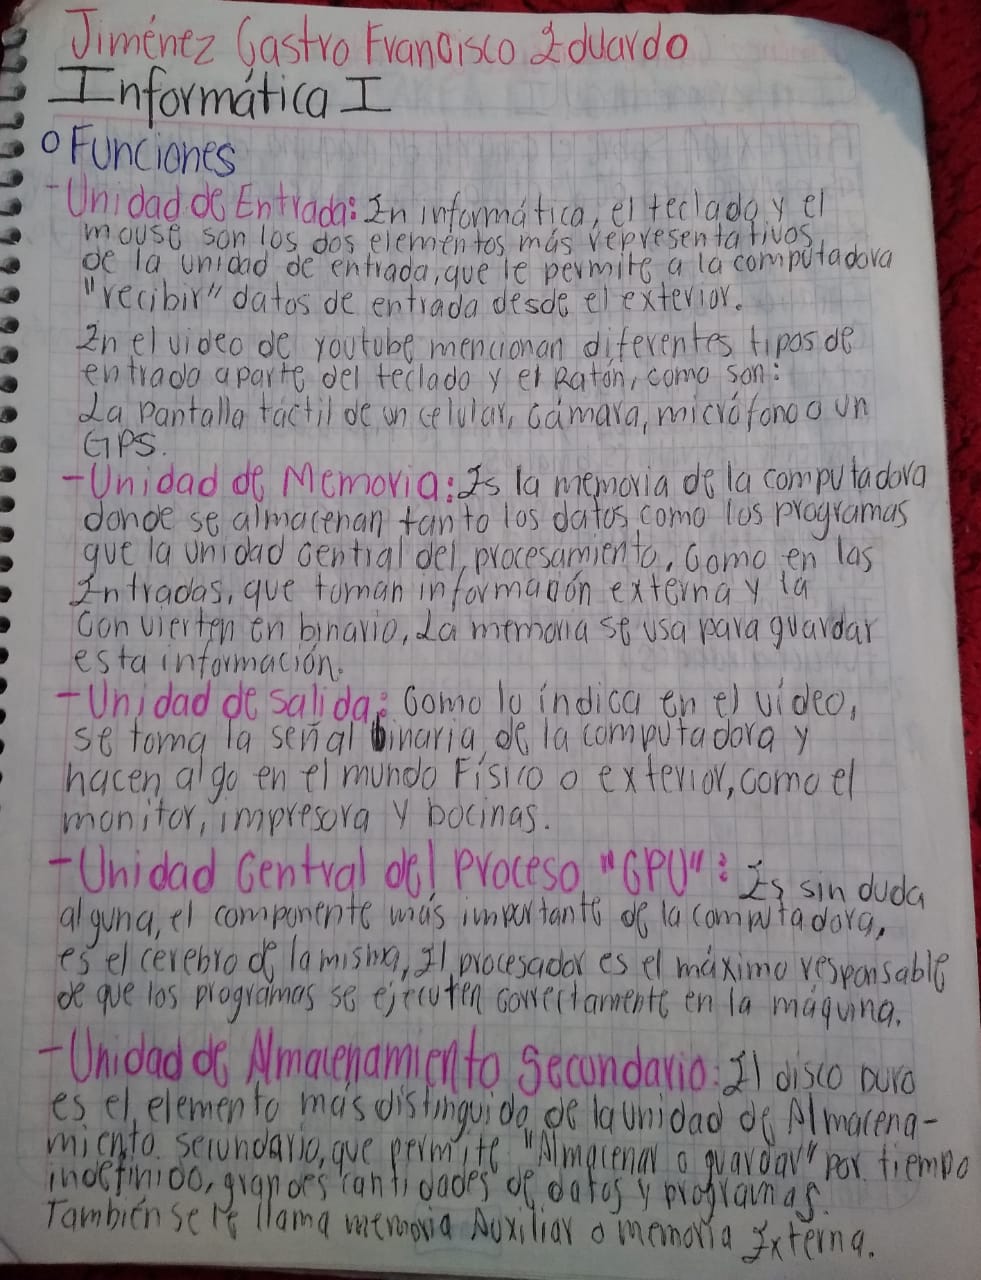 Jiménez Castro Francisco Eduardo
Informática I
o Funciones
- Unidad de Entrada: En informática, el teclado y el
mouse son los dos elementos más representativos
de la unidad de entrada, que le permite a la computadora
"recibir" datos de entrada desde el exterior.
En el video de youtube mencionan diferentes tipos de
entrada aparte del teclado y el Ratón, como son:
La pantalla táctil de un celular, cámara, micrófono o un
GPS.
- Unidad de Memoria: Es la memoria de la computadora
donde se almacenan tanto los datos como los programas
que la unidad central del procesamiento. Como en las
Entradas, que toman información externa y la
convierten en binario, La memoria se usa para guardar
esta información.
- Unidad de Salida: Como lo indica en el vídeo,
se toma la señal binaria de la computadora y
hacen algo en el mundo Físico o exterior, como el
monitor, impresora y bocinas.
- Unidad Central del Proceso "CPU": Es sin duda
alguna, el componente más importante de la computadora,
es el cerebro de la misma, El procesador es el máximo responsable
de que los programas se ejecuten correctamente en la máquina.
- Unidad de Almacenamiento Secundario: El disco duro
es el elemento más distinguido de la unidad de Almacena-
miento secundario, que permite "Almacenar o guardar" por tiempo
indefinido, grandes cantidades de datos y programas.
También se le llama memoria Auxiliar o memoria Externa.